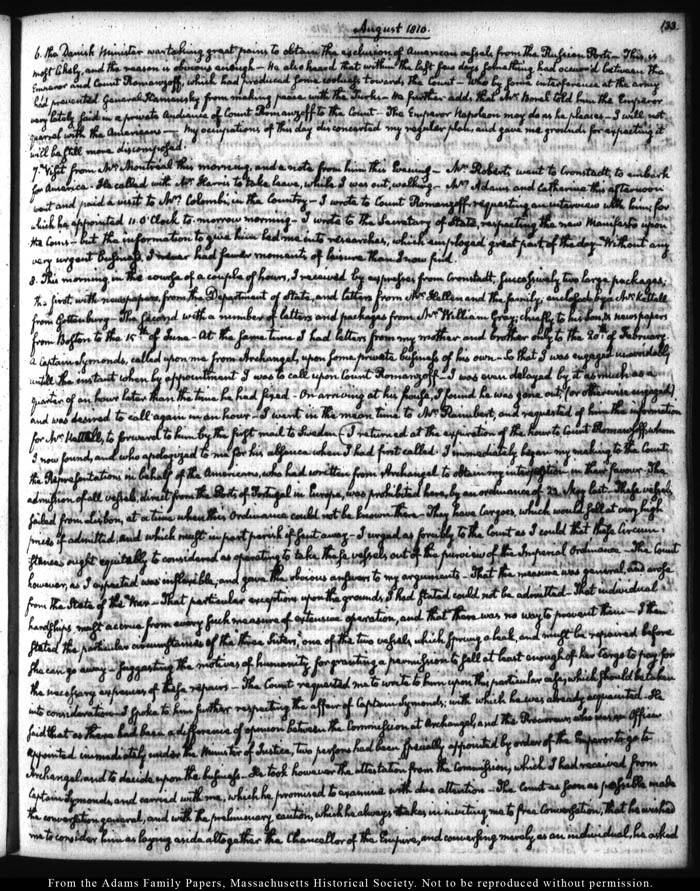 August 1810.
133.
6. the Danish Minister was taking great pains to obtain the exclusion of American vessels from the Russian Ports — This is
most likely, and the reason is obvious enough — He also heard that within the last few days something had occur'd between the
Emperor and Count Romanzoff, which had produced some coolness towards the Count — Who by some interference at the army
had prevented General Kamensky from making peace with the Turks — He further adds that Mr. Borel told him the Emperor
very lately said in a private Audience of Count Romanzoff to the Count — The Emperor Napoleon may do as he pleases — I will not
quarrel with the Americans — My occupations of this day disconcerted my regular plan, and gave me grounds for expecting it
will be still more discomposed.
7. Visit from Mr. Montréal this morning, and a note from him this Evening — Mr. Roberts went to Cronstadt, to embark
for America. He called with Mr. Harris to take leave, while I was out, walking — Mrs. Adams and Catherine this afternoon
went and paid a visit to Mrs. Colombi, in the Country — I wrote to Count Romanzoff requesting an interview with him; for
which he appointed 11. O'Clock to-morrow morning — I wrote to the Secretary of State, respecting the new Manifesto upon
the Coins — but the information to give him led me into researches, which employed great part of the day — Without any
very urgent business, I never had fewer moments of leisure than I now find.
8. This morning, in the course of a couple of hours, I received by expresses from Cronstadt, successively two large packages;
the first with newspapers, from the Department of State, and letters from Mr. Hellen and the family; enclosed by a Mr. Kettell
from Gottenburg — The second with a number of letters and packages from Mr. William Gray; chiefly to his son, & newspapers
from Boston to the 15th of June — At the same time I had letters from my mother and brother only to the 20th of February.
A Captain Symonds, called upon me from Archangel, upon some private business of his own — So that I was engaged unavoidably
until the instant when by appointment I was to call upon Count Romanzoff — I was even delayed by it as much as a
quarter of an hour later than the time he had fixed — On arriving at his house, I found he was gone out, (or otherwise engaged)
and was desired to call again in an hour — I went in the mean time to Mr. Raimbert, and requested of him the information
for Mr. Kettell, to forward to him by the first mail to Sweden — I returned at the expiration of the hour to Count Romanzoff, whom
I now found, and who apologized to me for his absence when I had first called. I immediately began my making to the Count,
the Representations in behalf of the Americans, who had written from Archangel to obtain my interposition in their favour. The
admission of all vessels, direct from the Ports of Portugal in Europe, was prohibited here, by an ordinance of 22. May last. These vessels
sailed from Lisbon, at a time when this Ordinance could not be known there — They have Cargoes, which would sell at very high
prices if admitted, and which must in part perish if sent away — I urged as forcibly to the Count as I could that these Circum-
stances ought equitably to considered as operating to take these vessels out of the purview of the Imperial Ordinance — The Count
however, as I expected was inflexible, and gave the obvious answer to my arguments — That the measure was general, and arose
from the State of the War — That particular exceptions upon the grounds I had stated could not be admitted — That individual
hardships must accrue from every such measure of extensive operation, and that there was no way to prevent them — I then
stated the particular circumstances of the three Sisters; one of the two vessels, which sprung a leak, and must be repaired before
she can go away — Suggesting the motives of humanity for granting a permission to sell at least enough of her Cargo to pay for
the necessary expences of these repairs — The Count requested me to write to him upon this particular case, which should be taken
into consideration — I spoke to him further respecting the affair of Captain Symonds; with which he was already acquainted. He
said that as there had been a difference of opinion between the Commission at Archangel, and the Procureur, who was an Officer
appointed immediately under the Minister of Justice, two persons had been specially appointed by order of the Emperor to go to
Archangel and to decide upon the business — He took however the attestation from the Commission, which I had received from
Captain Symonds, and carried with me, which he promised to examine with due attention — The Count as soon as possible made
the conversation general, and with the preliminary caution, which he always takes in inviting me to free Conversation, that he wished
me to consider him as laying aside altogether the Chancellor of the Empire, and conversing merely as an individual he asked
From the Adams Family Papers, Massachusetts Historical Society. Not to be reproduced without permission.